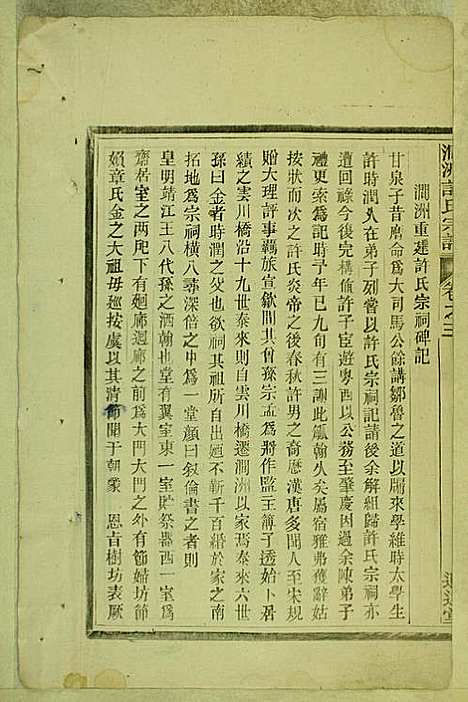 澗洲許氏宗譜 卷之三
澗洲重建許氏宗祠碑記
甘泉子昔膺命爲大司馬公餘講鄒魯之道以屬來學維時太學生
許時潤入在弟子列嘗以許氏宗祠記請後余解組歸許氏宗祠亦
遭回祿今後完構値許子宦遊粵西以公務至肇慶因過余陳弟子
禮更索爲記時予年已九旬有三謝此瓻翰久矣屬宿雅弗獲辭姑
按狀而次之許氏炎帝之後春秋許男之裔歷漢唐多聞人至宋規
贈大理評事羈旅宣歙間其曾孫宗孟爲將作監主簿了透始卜居
績之雲川橋沿十九世泰來則自雲川橋遷澗洲以家焉泰來六世
孫曰金者時潤之父欲祠其祖所自出廼不靳千百緡於家之南
拓地爲宗祠橫八尋深倍之中爲一堂顏曰叙倫書之者則
皇明靖江王八代孫之洒翰也堂有翼室東一室貯祭器西一室爲
齋居室之两戺下有廻廊迴廊之前爲大門大門之外有節婦坊節
婦章氏金之大祖毋廵按虞以其清節聞于朝蒙 恩㫖樹坊表厥